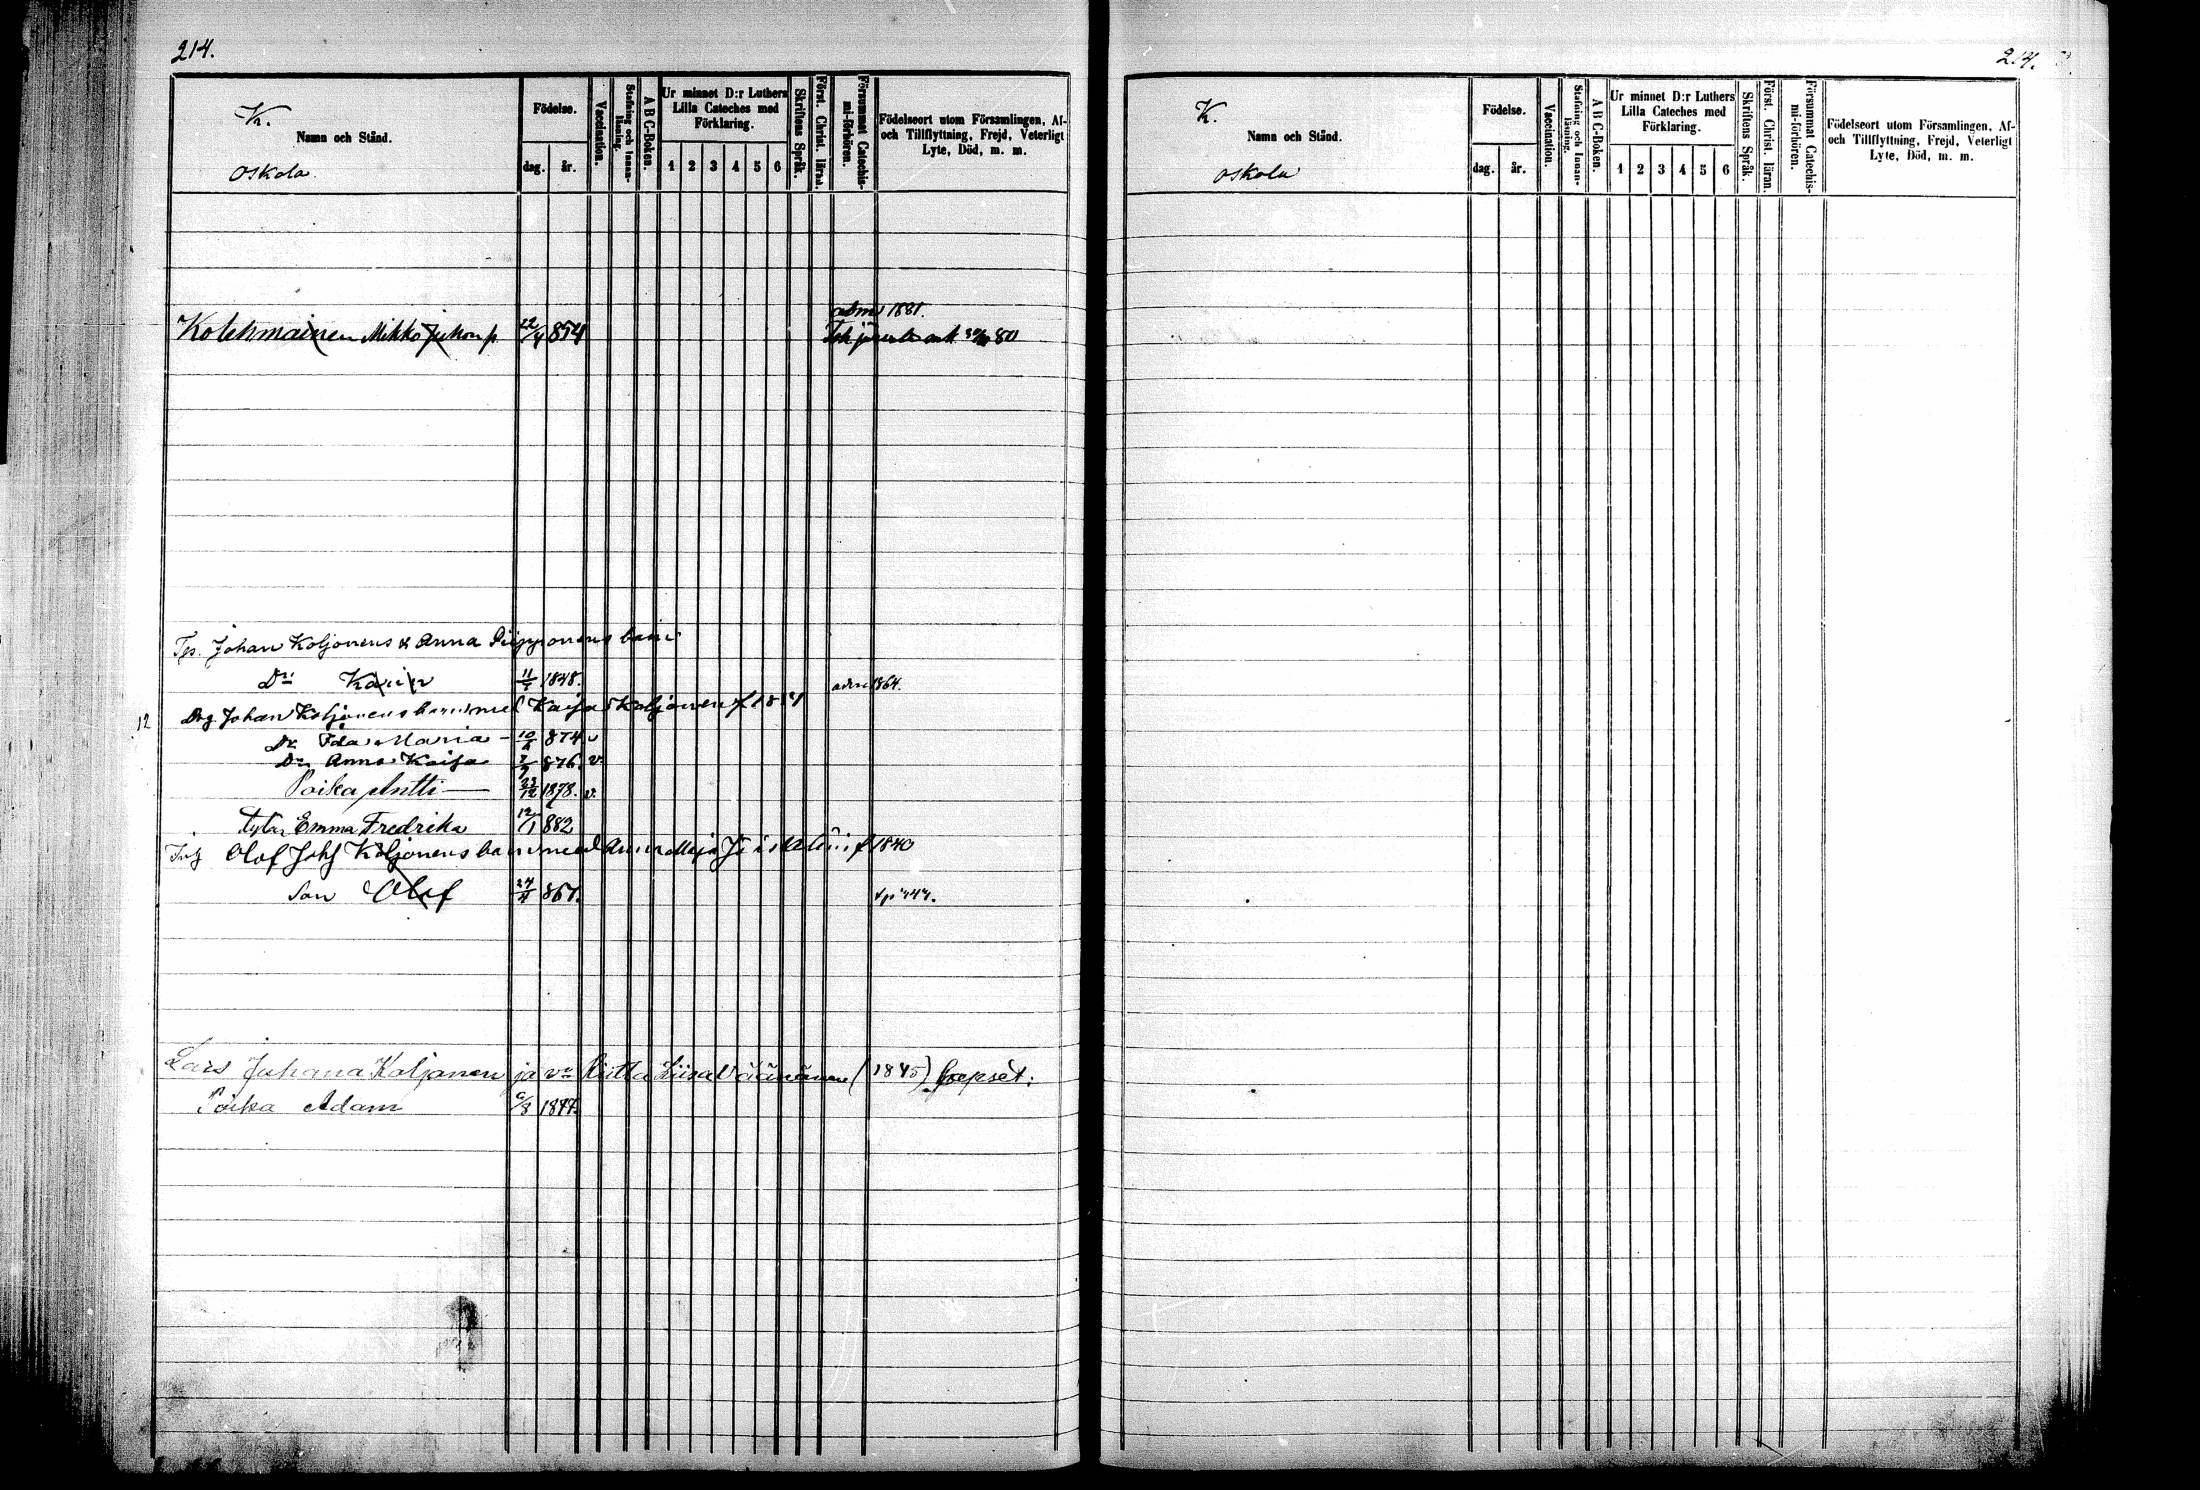 214.
K.
Namn och Stånd.
Oskola
Födelse.
dag. år.
Vaccination.
Stafning och Innanläsning.
A B C-Boken.
Ur minnet D:r Luthers
Lilla Cateches med
Förklaring.
1 2 3 4 5 6
Skriftens Språk.
Först. Christ. läran.
Försummat Catechismi-förhören.
Födelseort utom Församlingen, Af-
och Tillflyttning, Frejd, Veterligt
Lyte, Död, m. m.
adm 1881.
Kolehmainen Mikko p. 22/4 854 80
Johan Koljonens & Anna Piipponens barn
Dr: Karin 11/ 1848. adm 1864.
12 Johan Koljonens barn med Kaisa Koljonen f 18
Dr. Ida Maria - 10/ 874 v
Dr. Anna Kaisa 7/7 876. v.
Poika Antti — 23/12 1878. v.
tytär Emma Fredrika 12/1 882
Olof Johs Koljonens barn med Anna Maja f 1840
Son Olof 24/4 867.
Juhana Koljonen ja vo Riitta Liisa Väänänen (1845) lapset:
Poika Adam /8 1877.
214.
K.
Namn och Stånd.
Oskola
Födelse.
dag. år.
Vaccination.
Stafning och Innanläsning.
A B C-Boken.
Ur minnet D:r Luthers
Lilla Cateches med
Förklaring.
1 2 3 4 5 6
Skriftens Språk.
Först. Christ. läran.
Försummat Catechismi-förhören.
Födelseort utom Församlingen, Af-
och Tillflyttning, Frejd, Veterligt
Lyte, Död, m. m.